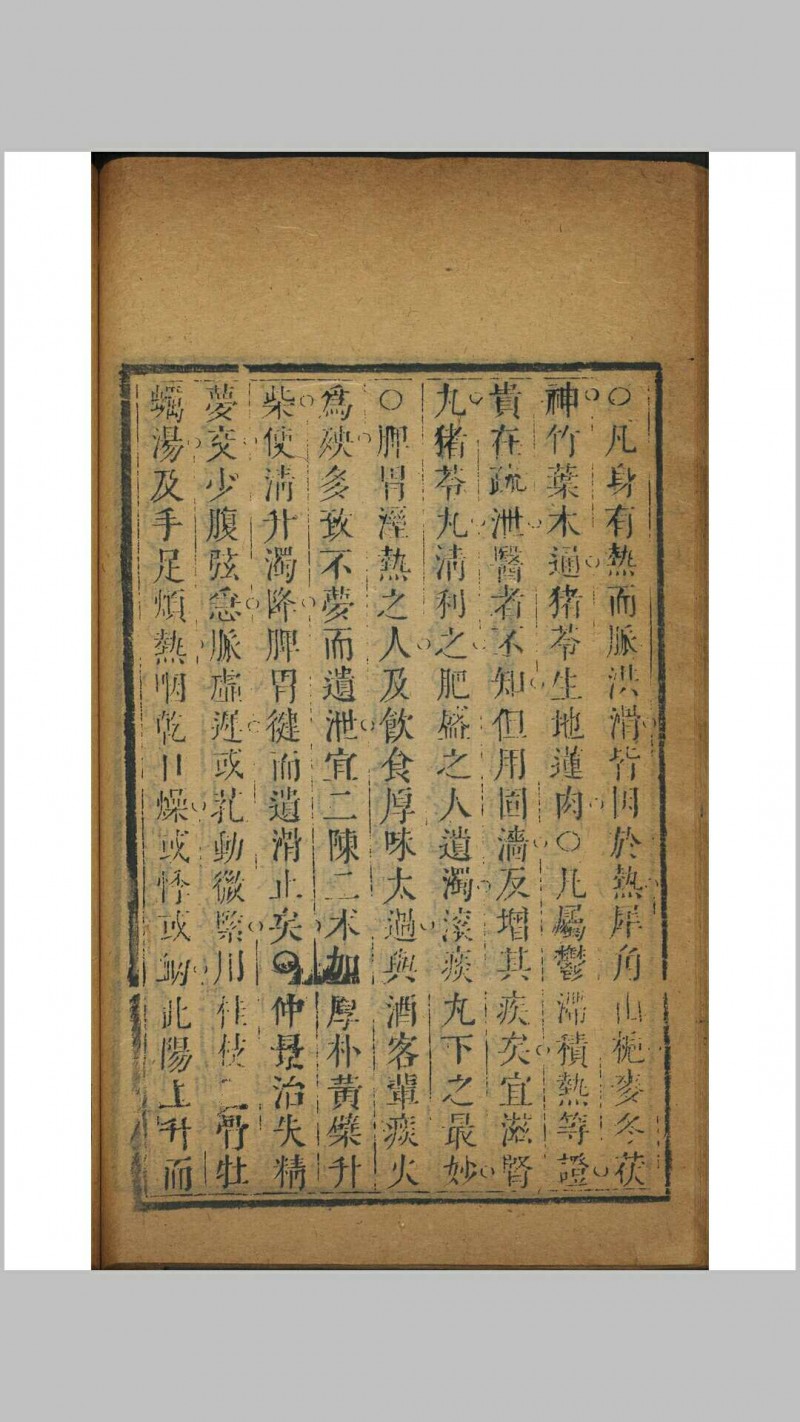 ○凡身有熱而脈洪滑皆因於熱犀角山梔麥冬茯
神竹葉木通猪苓生地蓮肉○凡屬鬱滯積熱等證
貴在疏泄醫者不知但用固濇反增其疾矣宜滋腎
丸猪苓丸清利之肥盛之人遺濁滾痰丸下之最妙
○脾胃溼熱之人及飲食厚味太過與酒客輩痰火
為殃多致不夢而遺泄宜二陳二朮加厚朴黃蘗升
柴使清升濁降脾胃健而遺滑止矣○仲景治失精
夢交少腹弦急脈虛遲或芤動微緊用桂枝龍骨牡
蠣湯及手足煩熱咽乾口燥或悸或衄此陽上升而